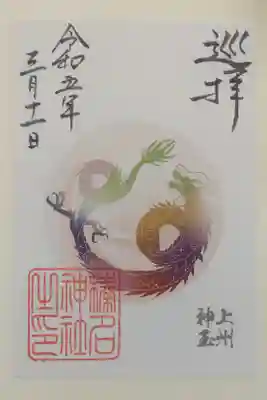 巡拝
上州
神玉
令和五年
三月十一日
榛名
神社
之印